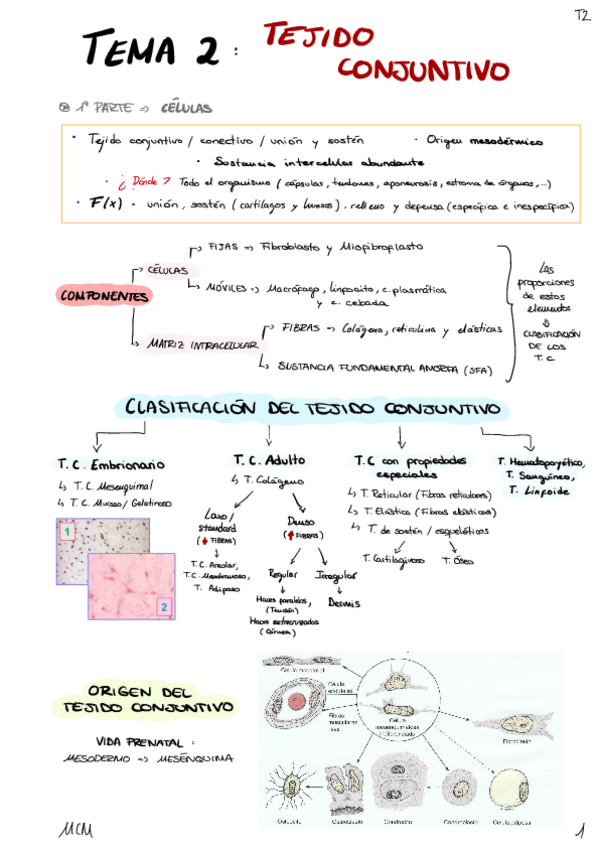 T2
TEMA 2: TEJIDO
CONJUNTIVO
1ª PARTE => CÉLULAS
· Tejido conjuntivo / conectivo / unión y sostén · Origen mesodérmico
· Sustancia intercelular abundante
· ¿Dónde? Todo el organismo (cápsulas, tendones, aponeurosis, estroma de órganos, ...)
· F(x) - unión, sostén (cartílagos y huesos), relleno y defensa (específica e inespecífica)
COMPONENTES
CÉLULAS
FIJAS => Fibroblasto y Miofibroblasto
MÓVILES => Macrófago, linfocito, c. plasmática
y c. cebada
MATRIZ INTRACELULAR
FIBRAS => Colágena, reticulina y elásticas
SUSTANCIA FUNDAMENTAL AMORFA (SFA)
Las
proporciones
de estos
elementos
CLASIFICACIÓN
DE LOS
T.C
CLASIFICACIÓN DEL TEJIDO CONJUNTIVO
T.C. Embrionario
T.C. Mesenquimal
T.C. Mucoso / Gelatinoso
1
2
T.C. Adulto
T. Colágeno
Laxo /
standard
(↓ FIBRAS)
T.C. Areolar,
T.C. Membranoso,
T. Adiposo
Denso
(↑ FIBRAS)
Regular
Haces paralelos,
(Tendón)
Haces entrecruzados
(Córnea)
Irregular
Dermis
T.C con propiedades
especiales
T. Reticular (Fibras reticulares)
T. Elástico (Fibras elásticas)
T. de sostén / esqueléticos
T. Cartilaginoso
T. Óseo
T. Hematopoyético,
T. Sanguíneo,
T. Linfoide
ORIGEN DEL
TEJIDO CONJUNTIVO
VIDA PRENATAL:
MESODERMO => MESÉNQUIMA
Célula mesotelial
Célula
endotelial
Fibras
musculares
lisas
Célula
mesenquimatosa
indiferenciada
Fibroblasto
Osteocito
Osteoblasto
Condrocito
Condroblasto
Célula adiposa
MCM
1